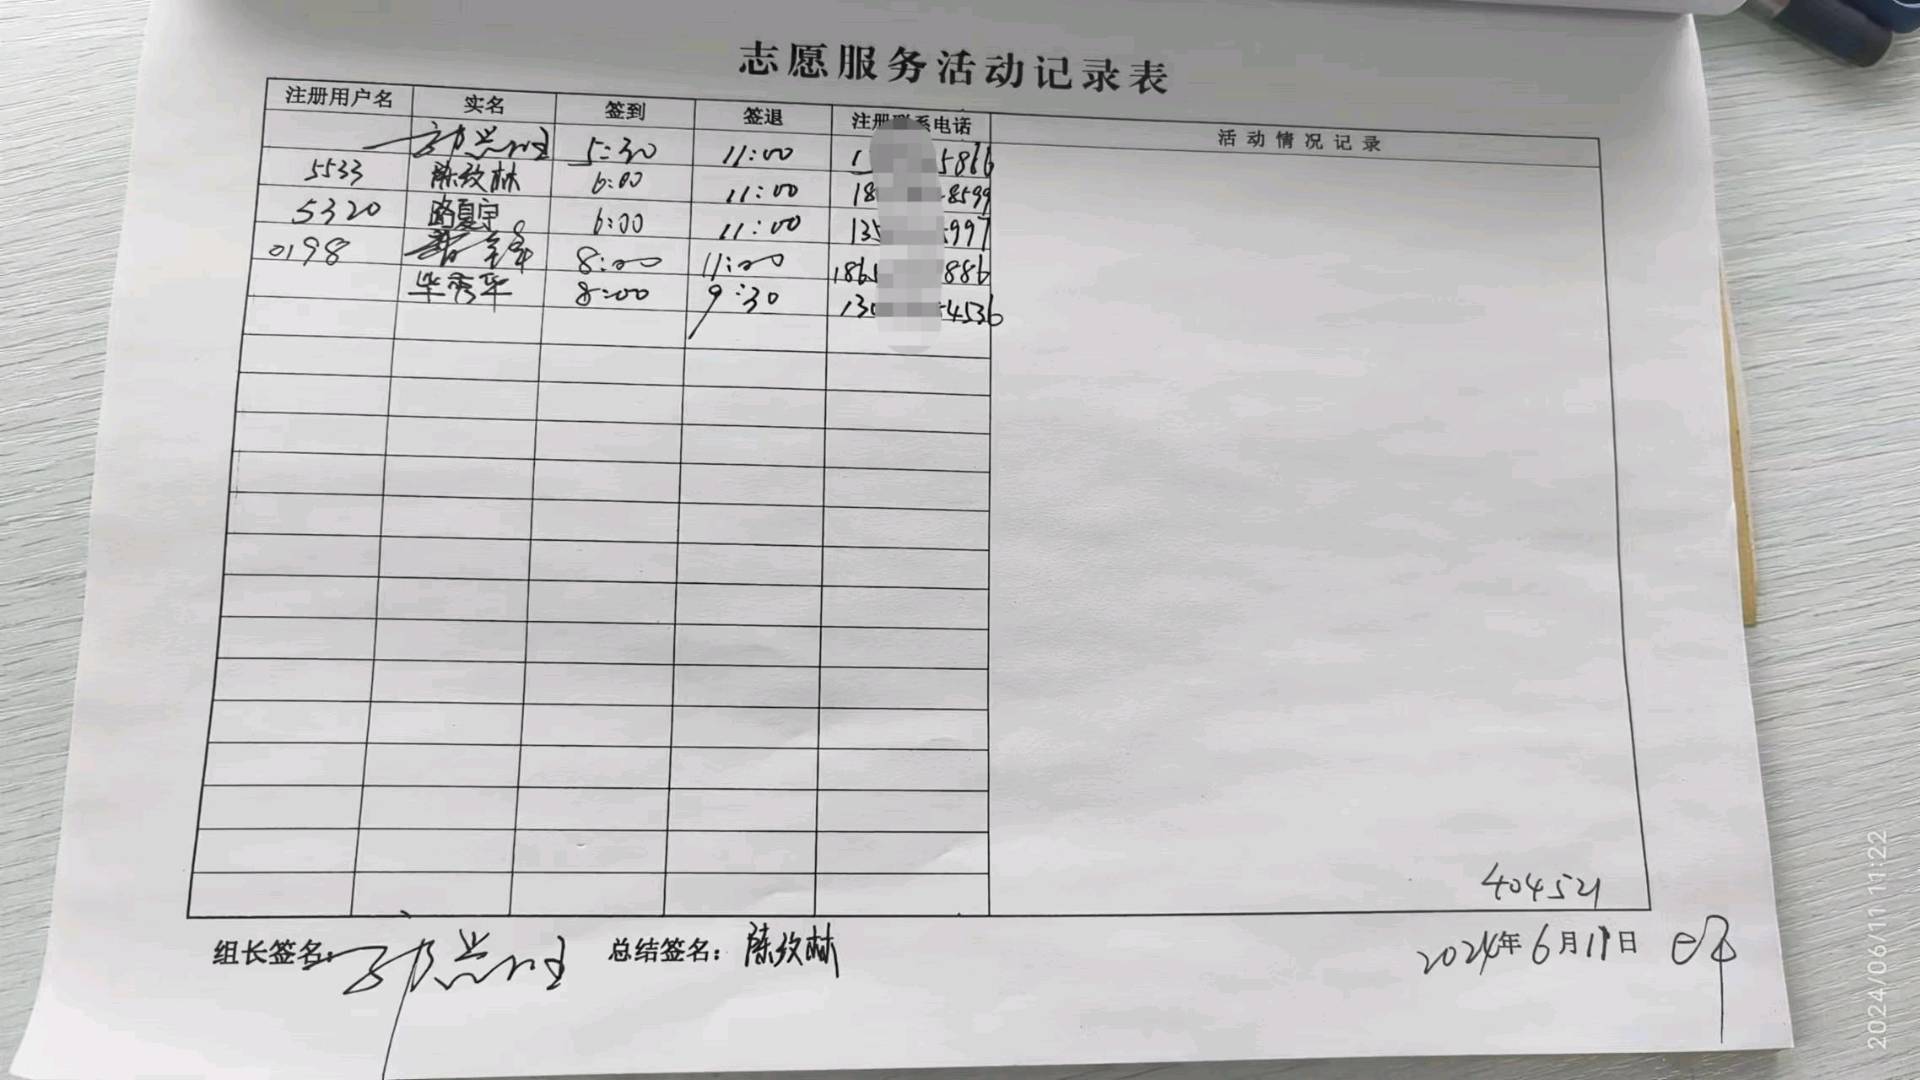 志愿服务活动记录表
注册用户名 实名 签到 签退 注册联系电话 活动情况记录
5:30 11:00 1 5866
5533 陈纹林 6:00 11:00 18 8599
5320 路夏宇 6:00 11:00 135 997
0198 8:00 11:00 1865 886
毕秀华 8:00 9:30 130 4536
404521
组长签名: 总结签名: 陈纹林 2024年6月11日
2024/06/11 11:22